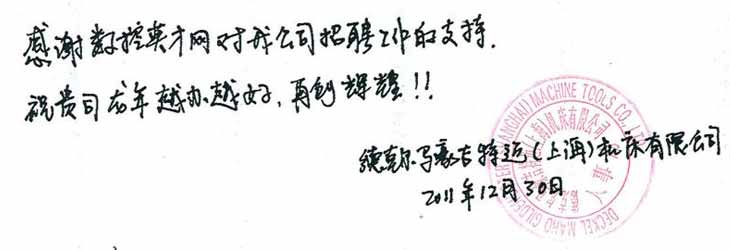 感谢数控英才网对我公司招聘工作的支持.
祝贵司龙年越办越好,再创辉煌!!
德克尔马豪吉特迈(上海)机床有限公司
2011年12月30日
DECKEL MAHO GILDEMEISTER (SHANGHAI) MACHINE TOOLS CO., LTD